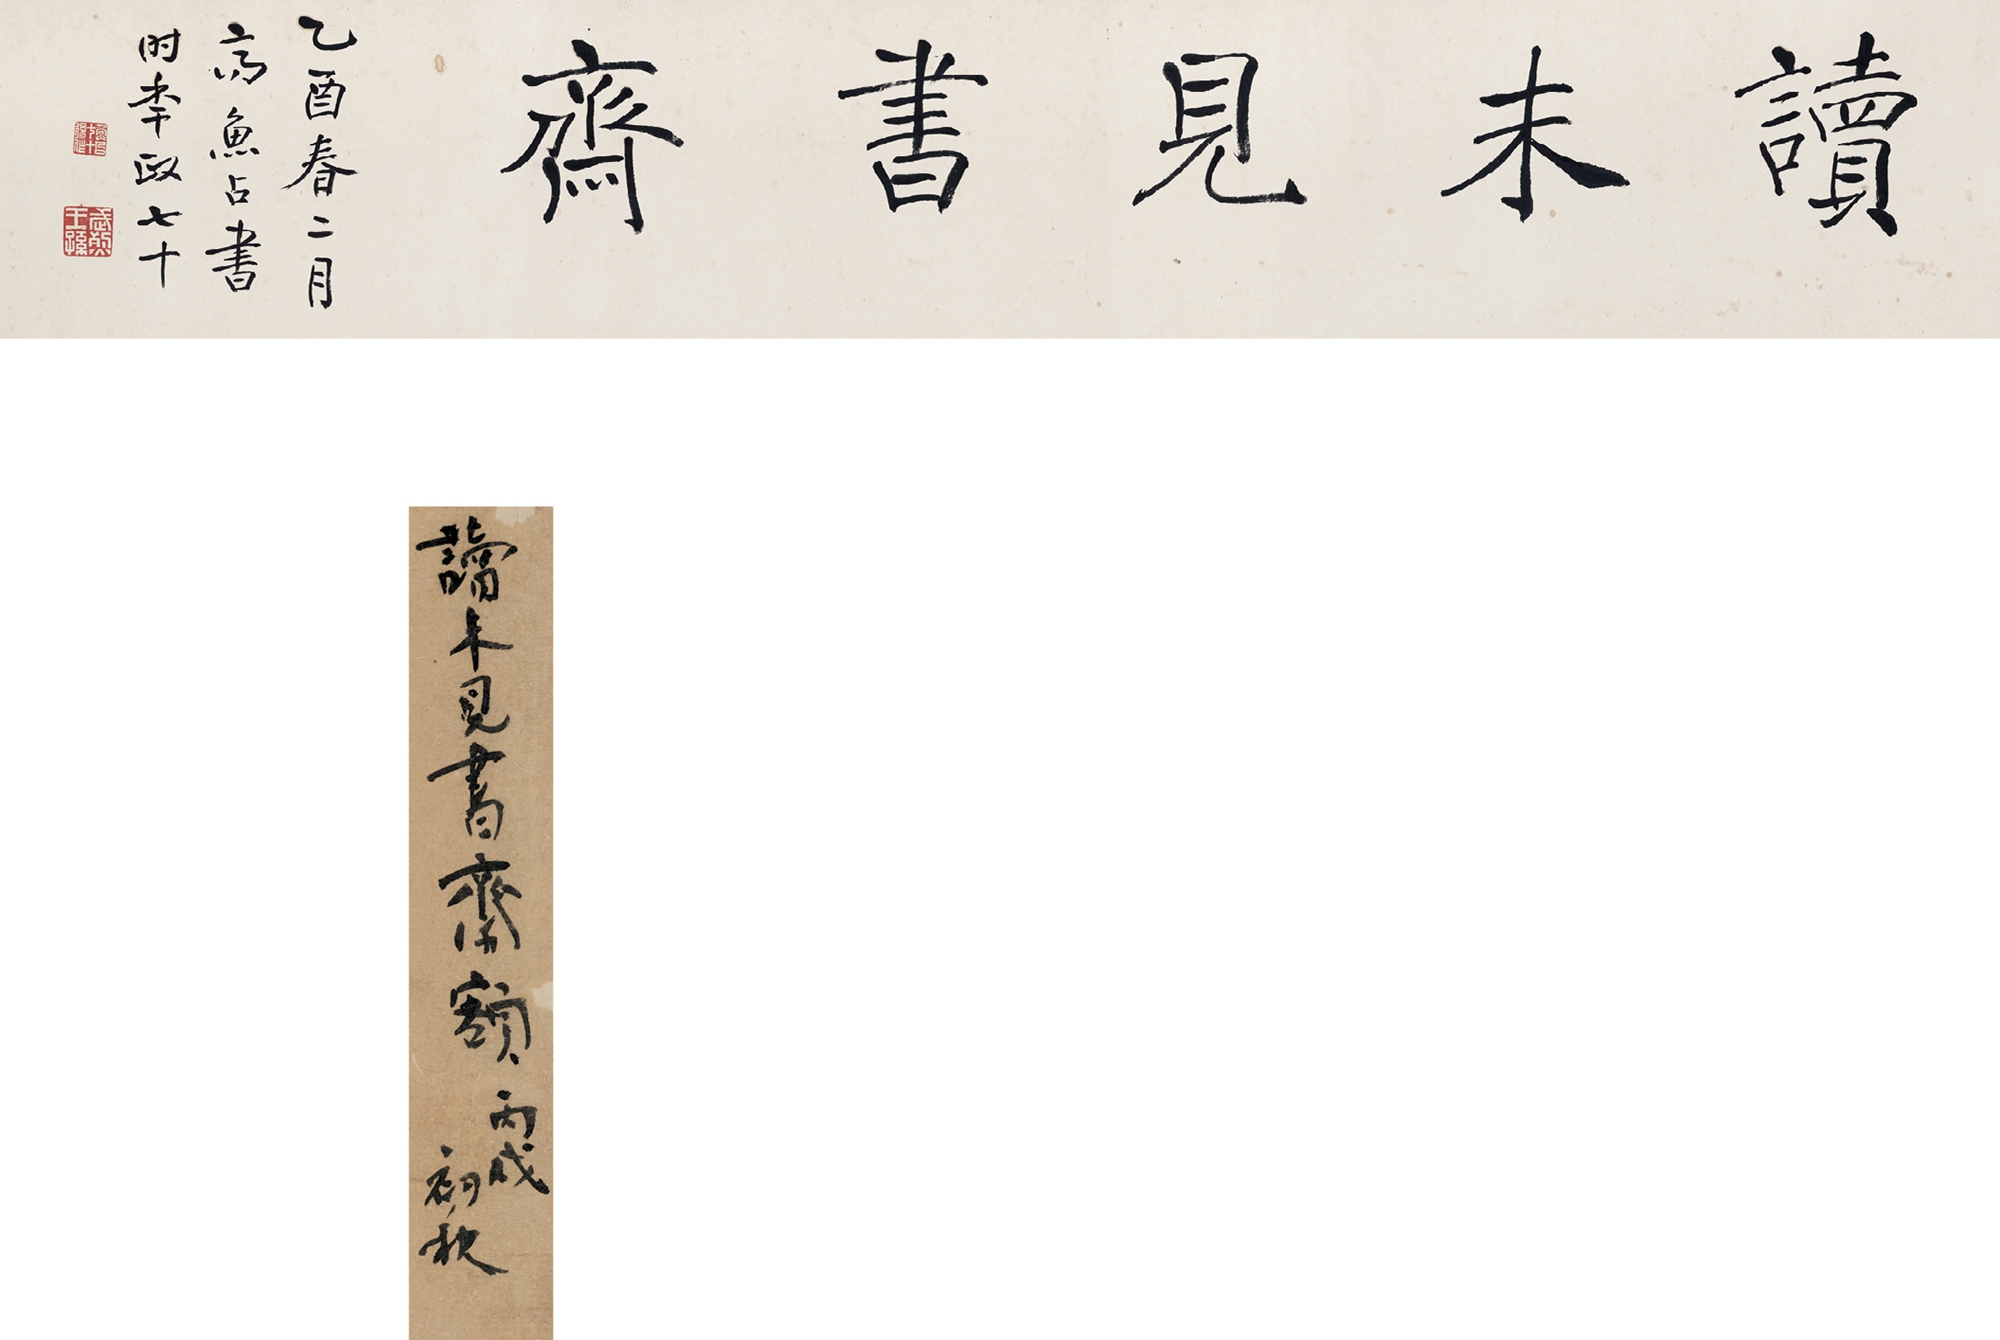 讀未見書齋
乙酉春二月
高魚占書
时秊政七十
武烈王孫
讀未見書齋額
丙戌
初秋